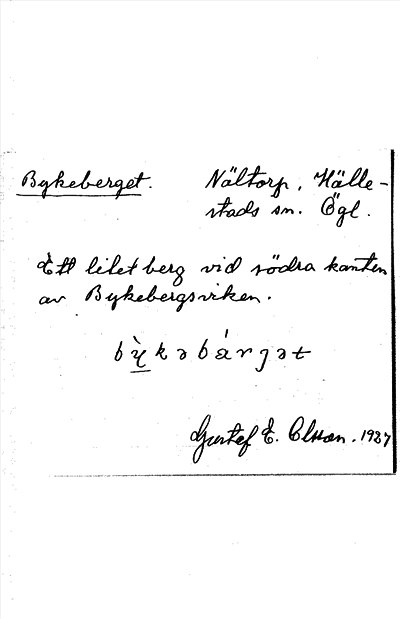 Bykeberget. Nältorp, Hälle-
stads sn. Ögl.
Ett litet berg vid södra kanten
av Bykebergsviken.
bỳkəbárjət
Gustef E. Olsson. 1927